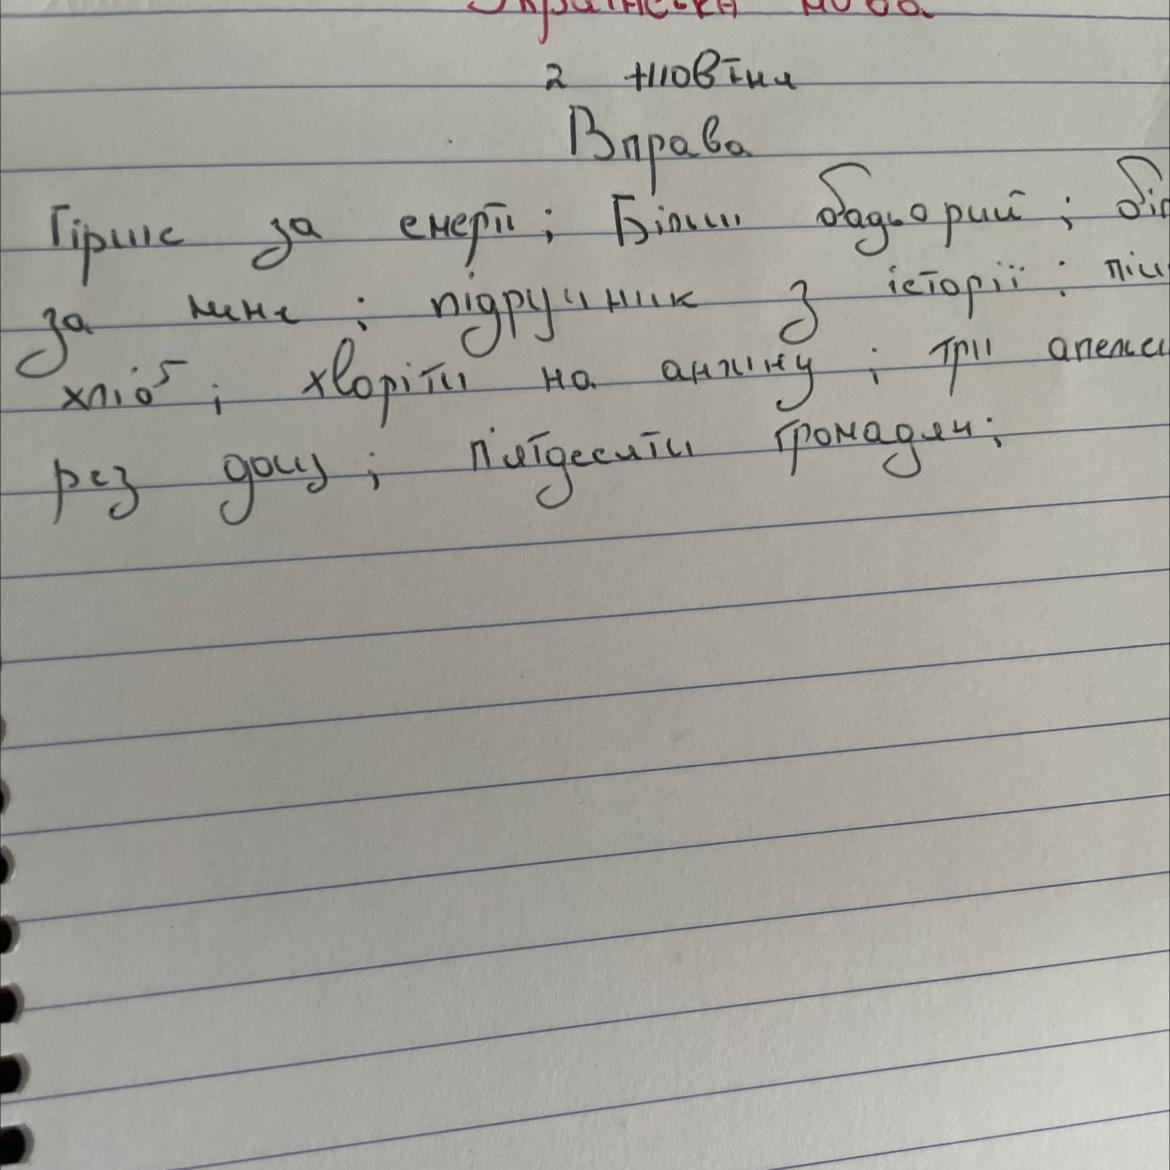 Українська мова
2 жовтня
Вправа
Гірше за смерті; Більш бадьорий; біл
за мене; підручник з історії; піш
хліб; хворіти на ангіну; три апельси
рез дощ; п'ятдесяти громадян;